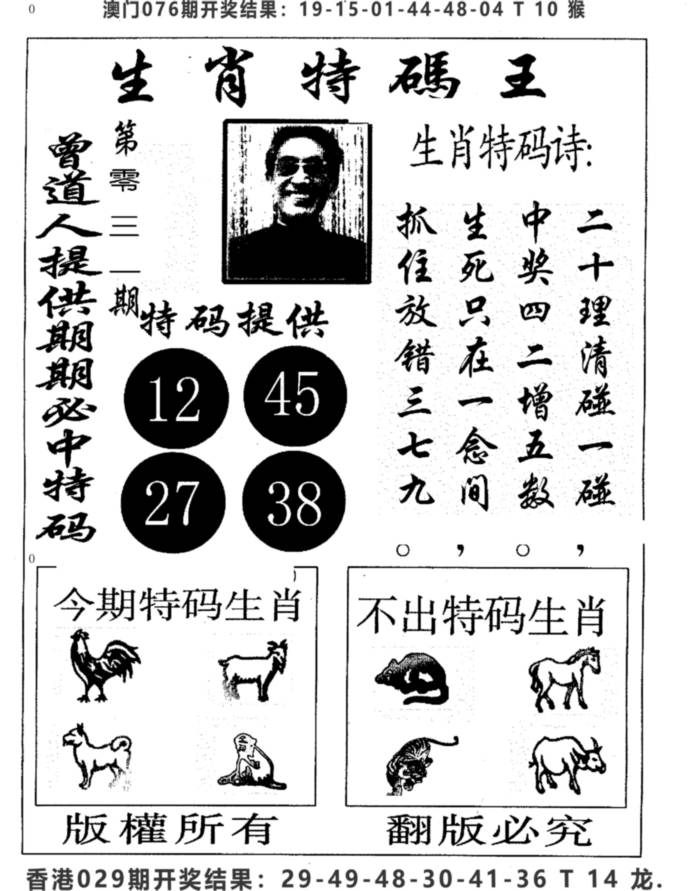 0
澳门076期开奖结果：19-15-01-44-48-04 T 10 猴
生肖特碼王
曾道人提供期期必中特码
第零三一期
生肖特码诗:
二十理清碰一碰，
中奖四二增五数。
生死只在一念间，
抓住放错三七九。
特码提供
12 45
27 38
0
今期特码生肖
不出特码生肖
版權所有
翻版必究
香港029期开奖结果：29-49-48-30-41-36 T 14 龙.